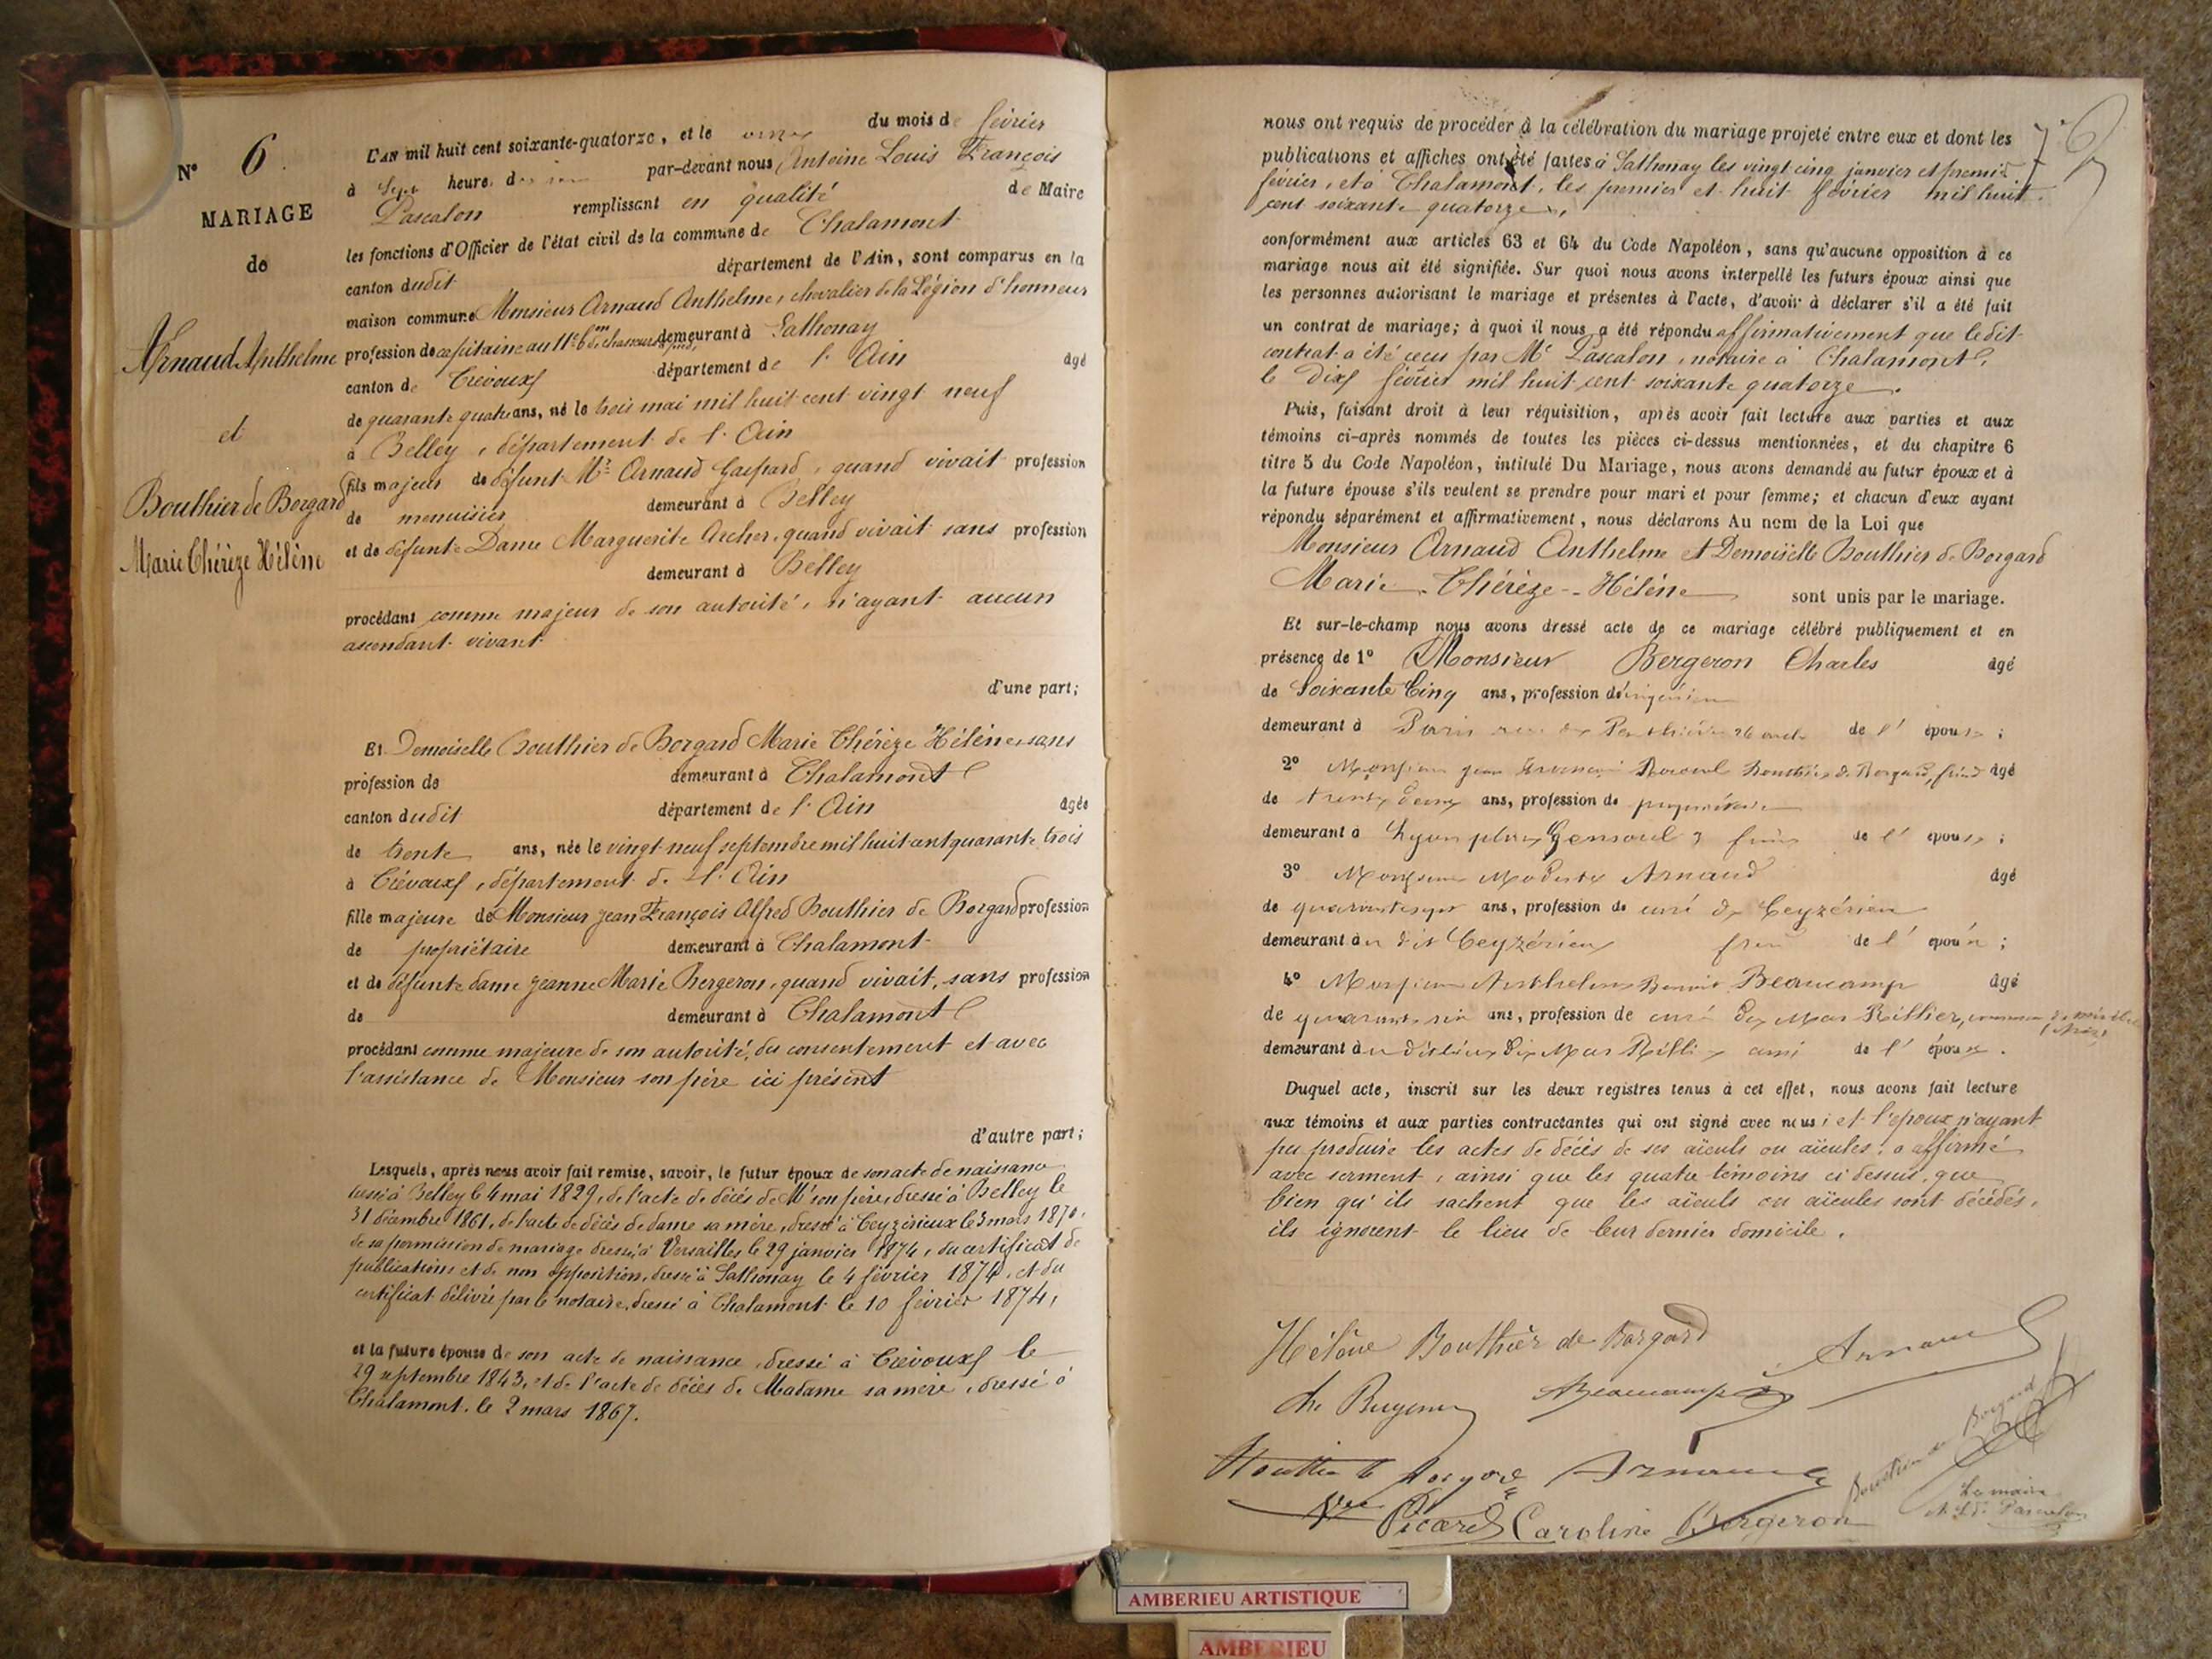 N° 6.
MARIAGE
de
Arnaud Anthelme
et
Bouthier de Borgard
Marie Thérèze Hélène
L'AN mil huit cent soixante-quatorze, et le onze du mois de février
à Sept heures du soir par-devant nous Antoine Louis François
Pascalon remplissant en qualité de Maire
les fonctions d'Officier de l'état civil de la commune de Chalamont
canton dudit département de l'Ain, sont comparus en la
maison commune Monsieur Arnaud Anthelme, chevalier de la Légion d'honneur
profession de capitaine au 11e bon de chasseurs à pied, demeurant à Sathonay
canton de Trévoux département de l'Ain âgé
de quarante quatre ans, né le trois mai mil huit cent vingt neuf
à Belley, département de l'Ain
fils majeur de défunt Mr Arnaud Gaspard, quand vivait profession
de menuisier demeurant à Belley
et de défunte Dame Marguerite Archer, quand vivait sans profession
demeurant à Belley
procédant comme majeur de son autorité, n'ayant aucun
ascendant vivant
d'une part;
Et Demoiselle Bouthier de Borgard Marie Thérèze Hélène, sans
profession de demeurant à Chalamont
canton dudit département de l'Ain âgée
de trente ans, née le vingt neuf septembre mil huit cent quarante trois
à Trévoux, département de l'Ain
fille majeure de Monsieur Jean François Alfred Bouthier de Borgard profession
de propriétaire demeurant à Chalamont
et de défunte dame Jeanne Marie Bergeron, quand vivait, sans profession
de demeurant à Chalamont
procédant comme majeure de son autorité, du consentement et avec
l'assistance de Monsieur son père ici présent
d'autre part;
Lesquels, après nous avoir fait remise, savoir, le futur époux de son acte de naissance
dressé à Belley le 4 mai 1829, de l'acte de décès de Mr son père, dressé à Belley le
31 décembre 1861, de l'acte de décès de dame sa mère, dressé à Ceyzérieux le 3 mars 1870,
de sa permission de mariage dressé à Versailles le 29 janvier 1874, du certificat de
publications et de non opposition, dressé à Sathonay le 4 février 1874, et du
certificat délivré par le notaire, dressé à Chalamont le 10 février 1874,
et la future épouse de son acte de naissance, dressé à Trévoux le
29 septembre 1843, et de l'acte de décès de Madame sa mère, dressé à
Chalamont, le 2 mars 1867.
7.
nous ont requis de procéder à la célébration du mariage projeté entre eux et dont les
publications et affiches ont été faites à Sathonay les vingt cinq janvier et premier
février, et à Chalamont, les premier et huit février mil huit
cent soixante quatorze,
conformément aux articles 63 et 64 du Code Napoléon, sans qu'aucune opposition à ce
mariage nous ait été signifiée. Sur quoi nous avons interpellé les futurs époux ainsi que
les personnes autorisant le mariage et présentes à l'acte, d'avoir à déclarer s'il a été fait
un contrat de mariage; à quoi il nous a été répondu affirmativement que ledit
contrat a été reçu par Me Pascalon, notaire à Chalamont,
le dix février mil huit cent soixante quatorze.
Puis, faisant droit à leur réquisition, après avoir fait lecture aux parties et aux
témoins ci-après nommés de toutes les pièces ci-dessus mentionnées, et du chapitre 6
titre 5 du Code Napoléon, intitulé Du Mariage, nous avons demandé au futur époux et à
la future épouse s'ils veulent se prendre pour mari et pour femme; et chacun d'eux ayant
répondu séparément et affirmativement, nous déclarons Au nom de la Loi que
Monsieur Arnaud Anthelme et Demoiselle Bouthier de Borgard
Marie-Thérèze-Hélène sont unis par le mariage.
Et sur-le-champ nous avons dressé acte de ce mariage célébré publiquement et en
présence de 1° Monsieur Bergeron Charles âgé
de Soixante Cinq ans, profession d'ingénieur
demeurant à Paris rue de Penthièvre 26 oncle de l'épouse;
2° Monsieur Jean François Bouthier de Borgard, âgé
de trente deux ans, profession de propriétaire
demeurant à Lyon place Gensoul 3 frère de l'épouse;
3° Monsieur Modeste Arnaud âgé
de quarante sept ans, profession de curé de Ceyzérieu
demeurant au dit Ceyzérieu frère de l'époux;
4° Monsieur Anthelme Benoit Beaucamp âgé
de quarante six ans, profession de curé du Mas Rillier,
demeurant au dit lieu du Mas Rillier ami de l'époux.
Duquel acte, inscrit sur les deux registres tenus à cet effet, nous avons fait lecture
aux témoins et aux parties contractantes qui ont signé avec nous; et l'époux n'ayant
pu produire les actes de décès de ses aïeuls ou aïeules, a affirmé
avec serment, ainsi que les quatre témoins ci dessus, que
bien qu'ils sachent que les aïeuls ou aïeules sont décédés,
ils ignorent le lieu de leur dernier domicile.
Hélène Bouthier de Borgard Arnaud
Ch. Bergeron Beaucamp
Bouthier de Borgard Arnaud Bouthier de Borgard
Vve Picard Caroline Bergeron
Le maire
A. L. F. Pascalon
AMBERIEU ARTISTIQUE
AMBERIEU